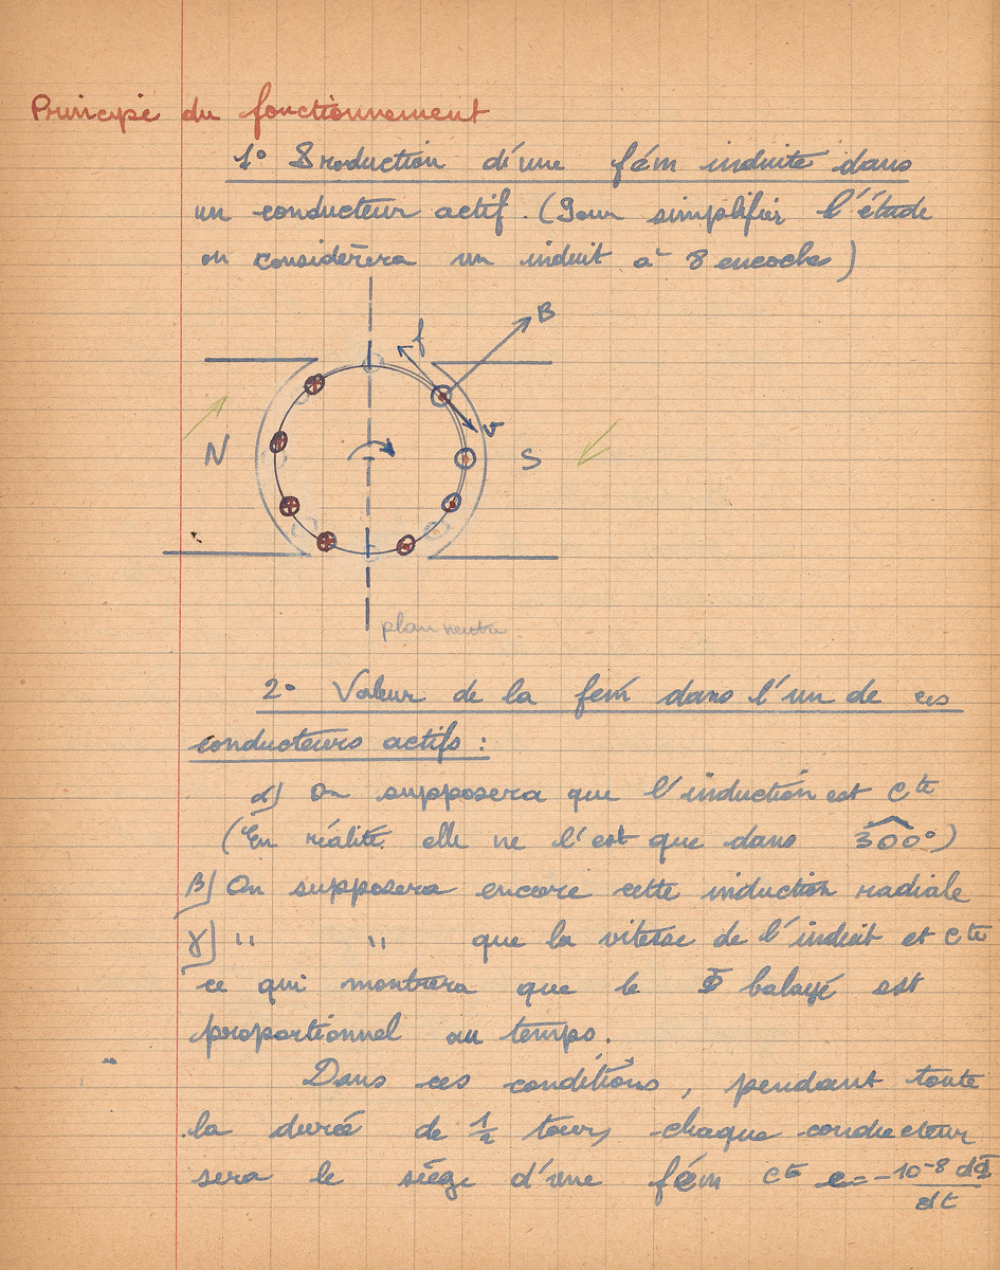 Principe du fonctionnement
1° Production d'une fém induite dans
un conducteur actif. (Pour simplifier l'étude
on considèrera un induit à 8 encoches)
B
f
v
N
S
plan neutre
2° Valeur de la fem dans l'un de ces
conducteurs actifs :
α) On supposera que l'induction est Cte
(En réalité elle ne l'est que dans 300°)
β) On supposera encore cette induction radiale
γ) " " que la vitesse de l'induit et Cte
ce qui montrera que le Φ balayé est
proportionnel au temps.
Dans ces conditions, pendant toute
la durée de 1/2 tour, chaque conducteur
sera le siège d'une fém Cte e = -10⁻⁸ dΦ/dt